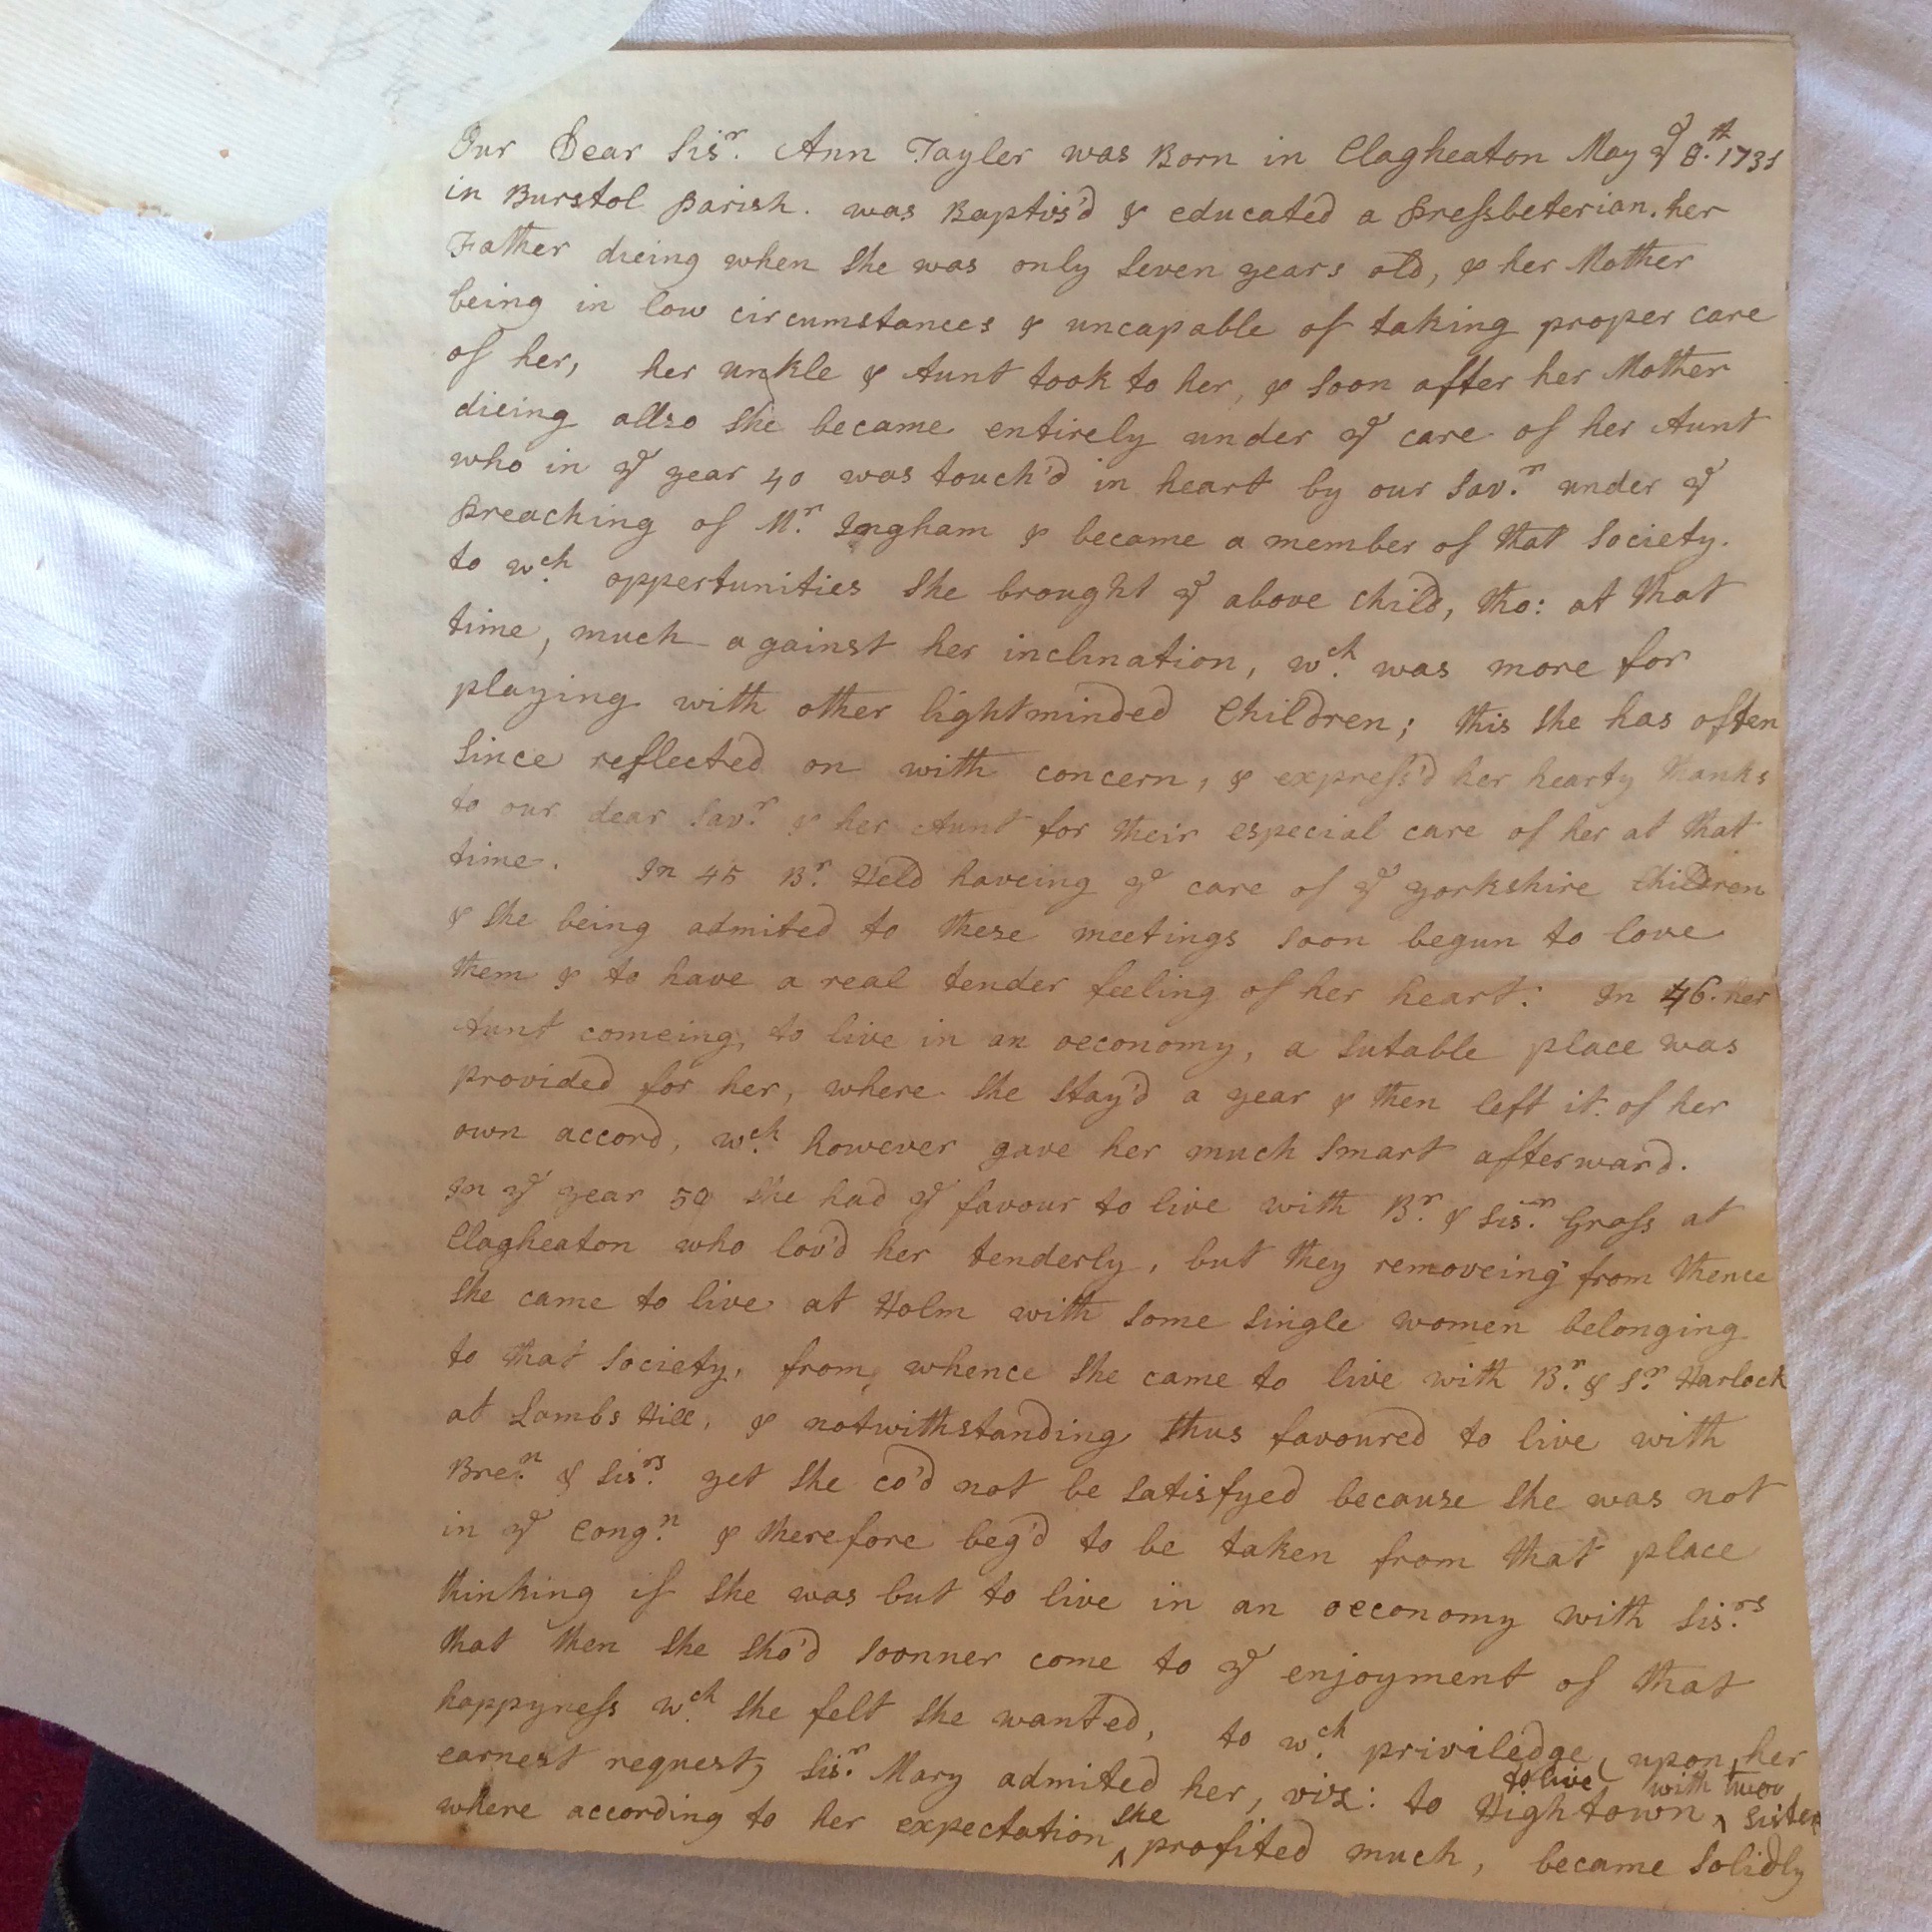 Our Dear Sisr. Ann Tayler was Born in Clagheaton May ye 8.th 1731
in Burstol Parish. was Baptis'd & educated a Pressbeterian. her
Father dieing when she was only seven years old, & her Mother
being in low circumstances & uncapable of taking proper care
of her, her unkle & Aunt took to her, & soon after her Mother
dieing allso she became entirely under ye care of her Aunt
who in ye year 40 was touch'd in heart by our Savr. under ye
Preaching of Mr. Ingham & became a member of that Society.
to wch. oppertunities she brought ye above child, tho: at that
time, much against her inclination, wch. was more for
playing with other lightminded Children; this she has often
since reflected on with concern, & express'd her hearty thanks
to our dear Savr. & her Aunt for their especial care of her at that
time. In 45 Br. Held haveing ye care of ye Yorkshire Children
& she being admited to these meetings soon begun to love
them & to have a real tender feeling of her heart: In 46. her
Aunt comeing to live in an oeconomy, a sutable place was
provided for her, where she stay'd a year & then left it of her
own accord, wch. however gave her much smart afterward.
In ye year 50 she had ye favour to live with Br. & Sisr. Grass at
Clagheaton who lov'd her tenderly, but they removeing from thence
she came to live at Holm with some single women belonging
to that Society, from whence she came to live with Br. & Sr. Harlock
at Lambs Hill, & notwithstanding thus favoured to live with
Bren. & Sisrs. yet she co'd not be satisfyed because she was not
in ye Congn. & therefore beg'd to be taken from that place
thinking if she was but to live in an oeconomy with Sisrs.
that then she sho'd soonner come to ye enjoyment of that
happyness wch. she felt she wanted, to wch. priviledge, upon her
earnest request, Sisr. Mary admited her, viz: to Hightown to live with two Sister
where according to her expectation she profited much, became solidly